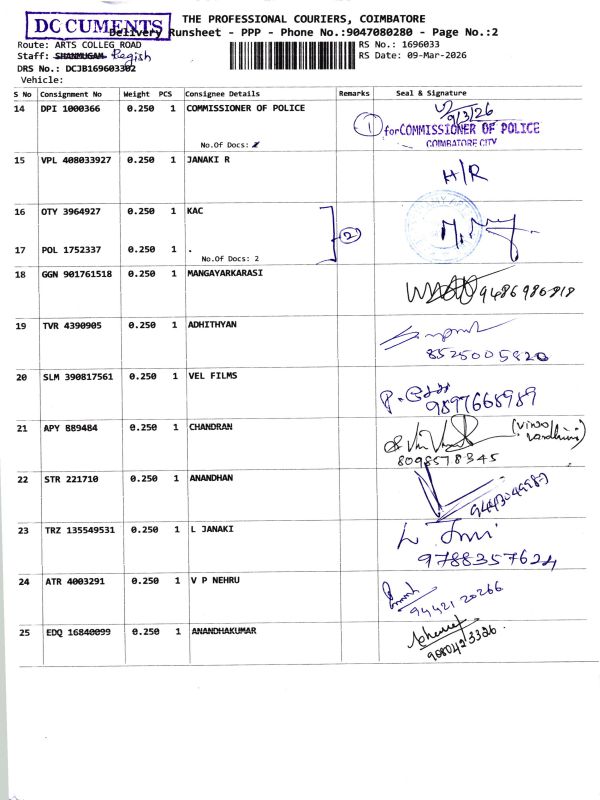 DOCUMENTS
THE PROFESSIONAL COURIERS, COIMBATORE
Delivery Runsheet - PPP - Phone No.:9047080280 - Page No.:2
Route: ARTS COLLEG ROAD
RS No.: 1696033
Staff: SHANMUGAM Regish
RS Date: 09-Mar-2026
DRS No.: DCJB169603302
Vehicle:
S No Consignment No Weight PCS Consignee Details Remarks Seal & Signature
14 DPI 1000366 0.250 1 COMMISSIONER OF POLICE
9/3/26
1 for COMMISSIONER OF POLICE
COIMBATORE CITY
No.Of Docs: 2
15 VPL 408033927 0.250 1 JANAKI R
H/R
16 OTY 3964927 0.250 1 KAC
2
17 POL 1752337 0.250 1 .
No.Of Docs: 2
18 GGN 901761518 0.250 1 MANGAYARKARASI
9486986818
19 TVR 4390905 0.250 1 ADHITHYAN
8525005820
20 SLM 390817561 0.250 1 VEL FILMS
9897668989
21 APY 889484 0.250 1 CHANDRAN
8098578345
22 STR 221710 0.250 1 ANANDHAN
23 TRZ 135549531 0.250 1 L JANAKI
9788357624
24 ATR 4003291 0.250 1 V P NEHRU
94421 20266
25 EDQ 16840099 0.250 1 ANANDHAKUMAR
9080423326